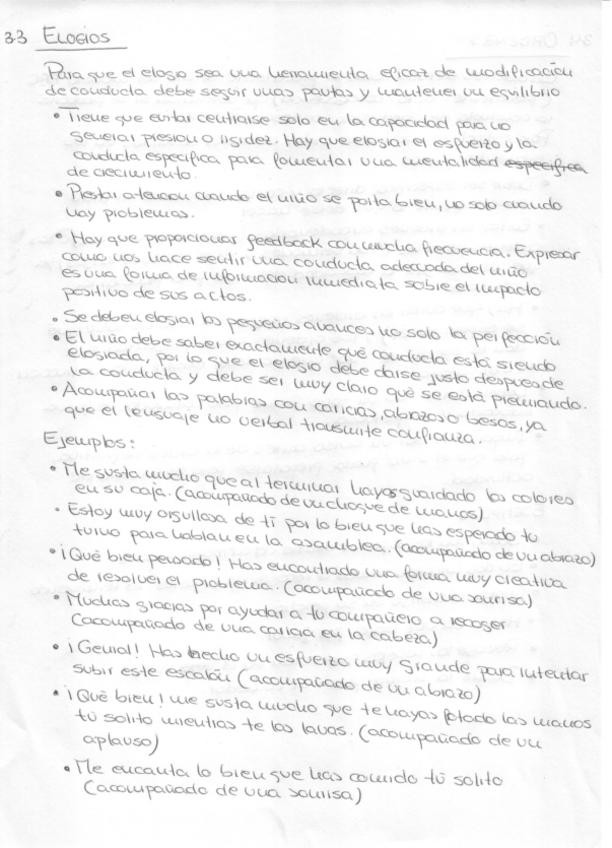 3.3 ELOGIOS
Para que el elogio sea una herramienta eficaz de modificación
de conducta debe seguir unas pautas y mantener un equilibrio
• Tiene que evitar centrarse solo en la capacidad para no
generar presion o rigidez. Hay que elogiar el esfuerzo y la
conducta especifica para fomentar una mentalidad especifica
de crecimiento.
• Prestar atencion cuando el niño se porta bien, no solo cuando
hay problemas.
• Hay que proporcionar feedback con mucha frecuencia. Expresar
como nos hace sentir una conducta adecuada del niño
es una forma de informacion inmediata sobre el impacto
positivo de sus actos.
• Se deben elogiar los pequeños avances no solo la perfección
• El niño debe saber exactamente qué conducta está siendo
elogiada, por lo que el elogio debe darse justo despues de
la conducta y debe ser muy claro qué se está premiando.
• Acompañar las palabras con caricias, abrazos o besos, ya
que el lenguaje no verbal transmite confianza.
Ejemplos:
• Me gusta mucho que al terminar hayas guardado los colores
en su caja. (acompañado de un choque de manos)
• Estoy muy orgullosa de ti por lo bien que has esperado tu
turno para hablar en la asamblea. (acompañado de un abrazo)
• ¡Qué bien pensado! Has encontrado una forma muy creativa
de resolver el problema. (acompañado de una sonrisa)
• Muchas gracias por ayudar a tu compañero a recoger
(acompañado de una caricia en la cabeza)
• ¡Genial! Has hecho un esfuerzo muy grande para intentar
subir este escalón (acompañado de un abrazo)
• ¡Qué bien! me gusta mucho que te hayas frotado las manos
tú solito mientras te las lavas. (acompañado de un
aplauso)
• Me encanta lo bien que has comido tú solito
(acompañado de una sonrisa)